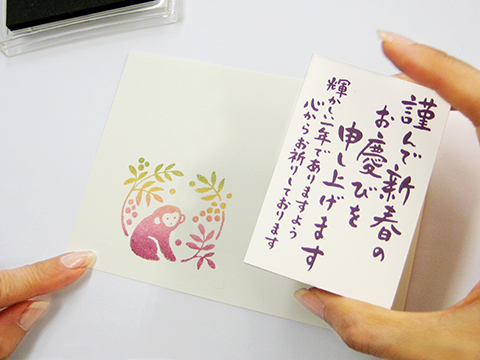 謹んで新春の
お慶びを
申し上げます
輝かしい一年でありますよう
心からお祈りしております